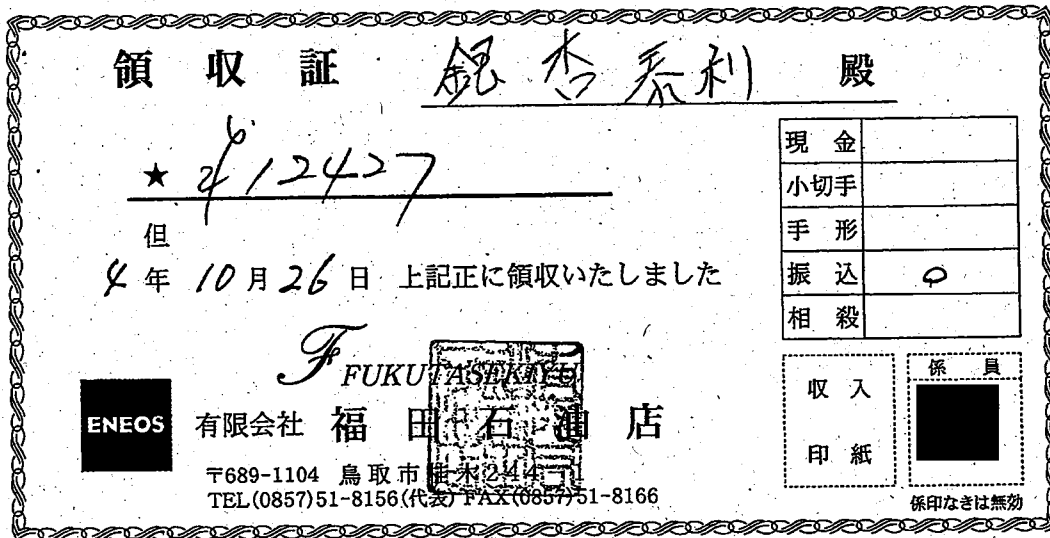 領収証 銀杏泰利 殿
★ ¥12427
但
4年10月26日 上記正に領収いたしました
現金
小切手
手形
振込 ○
相殺
F FUKUTASEKIYU
ENEOS 有限会社 福田石油店
〒689-1104 鳥取市
TEL(0857)51-8156(代表) FAX(0857)51-8166
収入
印紙
係員
係印なきは無効